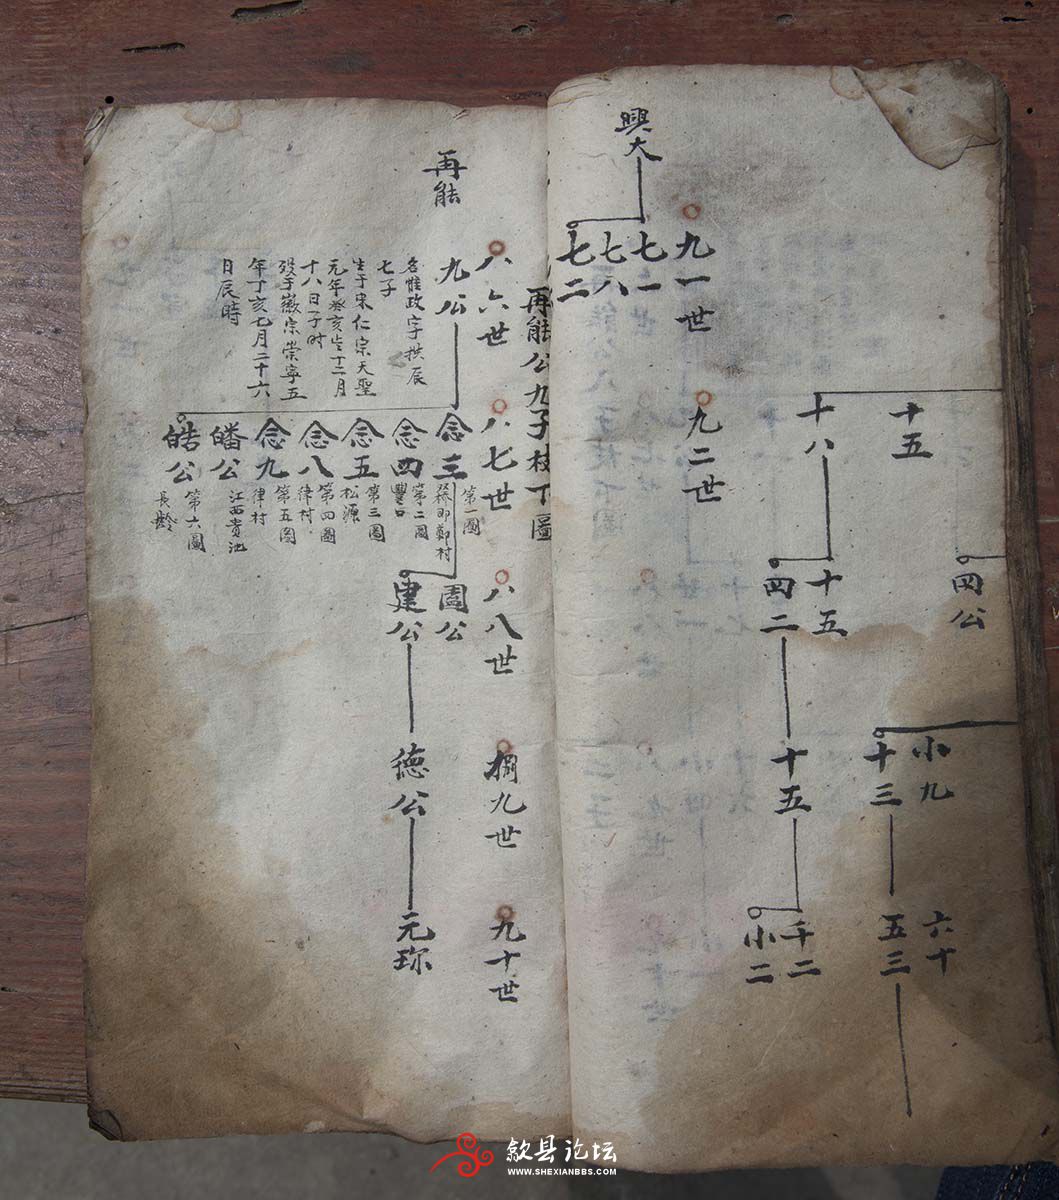 興大
九一世
七一
七八
七二
九二世
十五
十八
㓁公
十五
㓁二
小九
十三
十五
六十
五三
千二
小二
再能公九子枝下圖
八六世
再能
九公
名惟政字拱辰
七子
生于宋仁宗天聖
元年癸亥岁十二月
十八日子时
殁于徽宗崇寧五
年丁亥七月二十六
日辰時
八七世
念三
第一圖
即鄭村
念四
第二圖
豐口
念五
第三圖
松源
念八
第四圖
律村
念九
第五图
律村
皤公
江西貴池
皓公
第六圖
長齡
八八世
圖公
建公
九世
德公
九十世
元珎
歙县论坛
WWW.SHEXIANBBS.COM